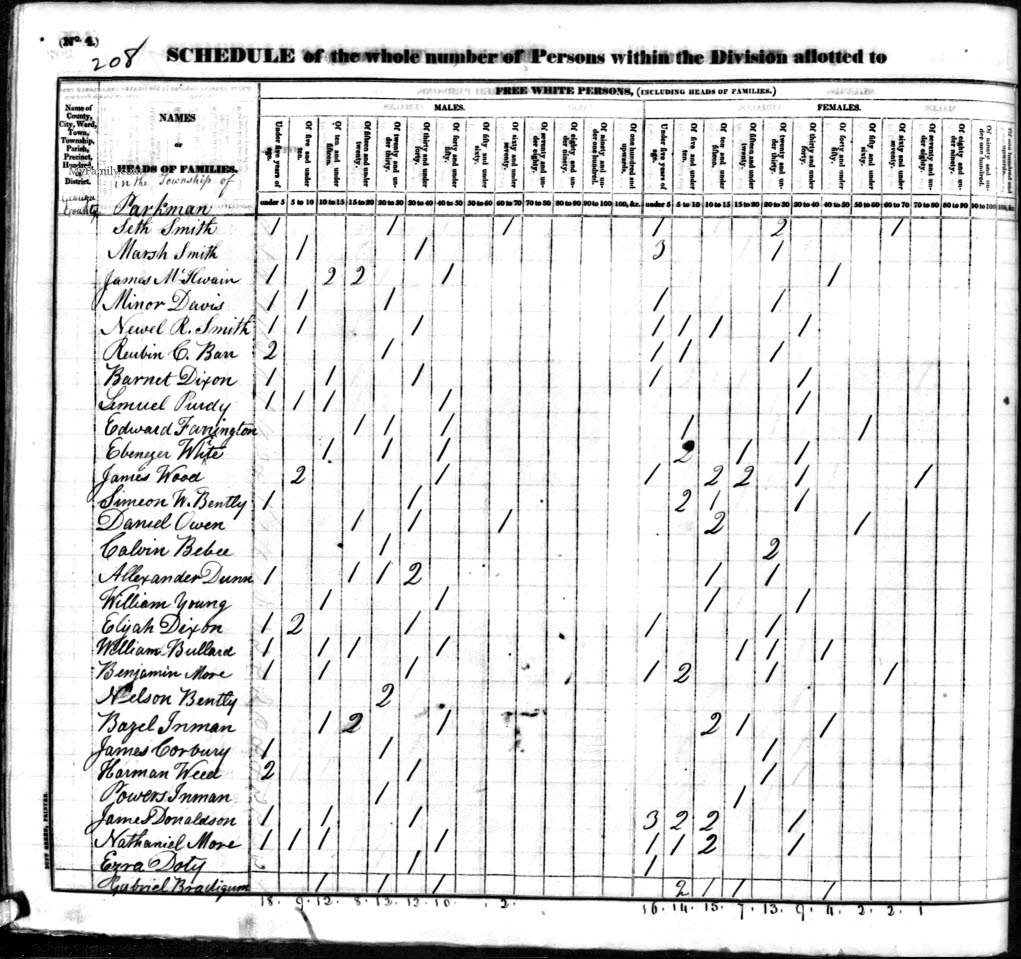 (No. 4.)
208
SCHEDULE of the whole number of Persons within the Division allotted to
FREE WHITE PERSONS, (INCLUDING HEADS OF FAMILIES.)
Name of County, City, Ward, Town, Township, Parish, Precinct, Hundred, District.
NAMES
OF
HEADS OF FAMILIES.
MALES.
FEMALES.
Under five years of age. Of five and under ten. Of ten and under fifteen. Of fifteen and under twenty. Of twenty and under thirty. Of thirty and under forty. Of forty and under fifty. Of fifty and under sixty. Of sixty and under seventy. Of seventy and under eighty. Of eighty and under ninety. Of ninety and under one hundred. Of one hundred and upwards.
Under five years of age. Of five and under ten. Of ten and under fifteen. Of fifteen and under twenty. Of twenty and under thirty. Of thirty and under forty. Of forty and under fifty. Of fifty and under sixty. Of sixty and under seventy. Of seventy and under eighty. Of eighty and under ninety. Of ninety and under one hundred. Of one hundred and upwards
in the Township of
Geauga County Parkman
under 5 5 to 10 10 to 15 15 to 20 20 to 30 30 to 40 40 to 50 50 to 60 60 to 70 70 to 80 80 to 90 90 to 100 100, &c. under 5 5 to 10 10 to 15 15 to 20 20 to 30 30 to 40 40 to 50 50 to 60 60 to 70 70 to 80 80 to 90 90 to 100 100, &c.
Seth Smith 1 1 1 1 2 1
Marsh Smith 1 1 3 1
James McIlwain 1 2 2 1 1
Minor Davis 1 1 1 1 1
Newel R. Smith 1 1 1 1 1 1 1
Reubin C. Barr 2 1 1 1 1
Barnet Dixon 1 1 1 1 1
Lemuel Purdy 1 1 1 1 1
Edward Farrington 1 1 1 1 1
Ebenezer White 1 1 1 2 1 1
James Wood 2 1 1 2 2 1 1
Simeon W. Bently 1 1 2 1 1
Daniel Owen 1 1 1 2 1
Calvin Bebee 1 2
Allexander Dunn 1 1 1 2 1 1
William Young 1 1 1 1
Elijah Dixon 1 2 1 1 1
William Bullard 1 1 1 1 1 1 1
Benjamin More 1 1 1 1 2 1 1
Nelson Bently 2
Bazel Inman 1 2 1 2 1 1
James Corbury 1 1 1
Harman Weed 2 1 1
Powers Inman 1 1
James Donaldson 1 1 1 3 2 2 1
Nathaniel More 1 1 1 1 1 1 2 1
Ezra Doty 1 1
Gabriel Bradigum 1 1 1 2 1 1 1
18. 9. 12. 8. 13. 12. 10. 2. 16. 14. 15. 7. 13. 9. 4. 2. 2. 1